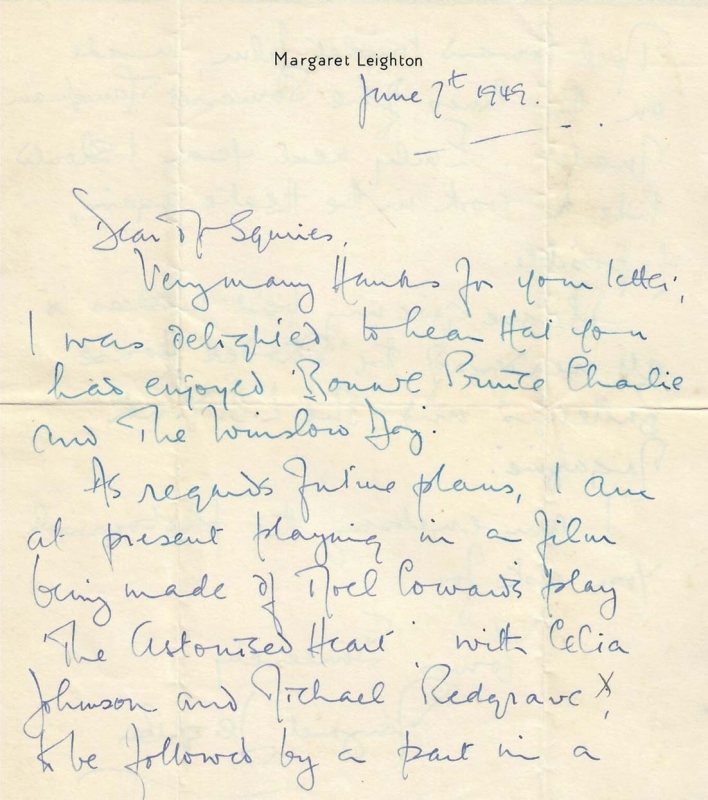 Margaret Leighton
June 7th 1949.
Dear Mr Squires,
Very many thanks for your letter,
I was delighted to hear that you
had enjoyed 'Bonnie Prince Charlie
and 'The Winslow Boy'.
As regards future plans, I am
at present playing in a film
being made of Noel Coward's play
'The Astonised Heart' with Celia
Johnson and Michael Redgrave X,
to be followed by a part in a